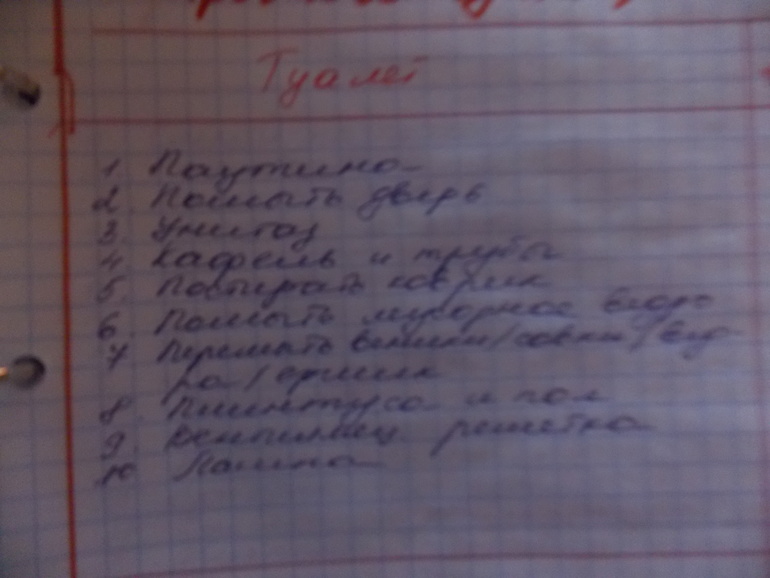 Туалет
1. Паутина
2. Помыть дверь
3. Унитаз
4. Кафель и трубы
5. Постирать коврик
6. Помыть мусорное ведро
7. Перемыть веники/совки/вед-
ра/ершик
8. Плинтуса и пол
9. решетка
10.